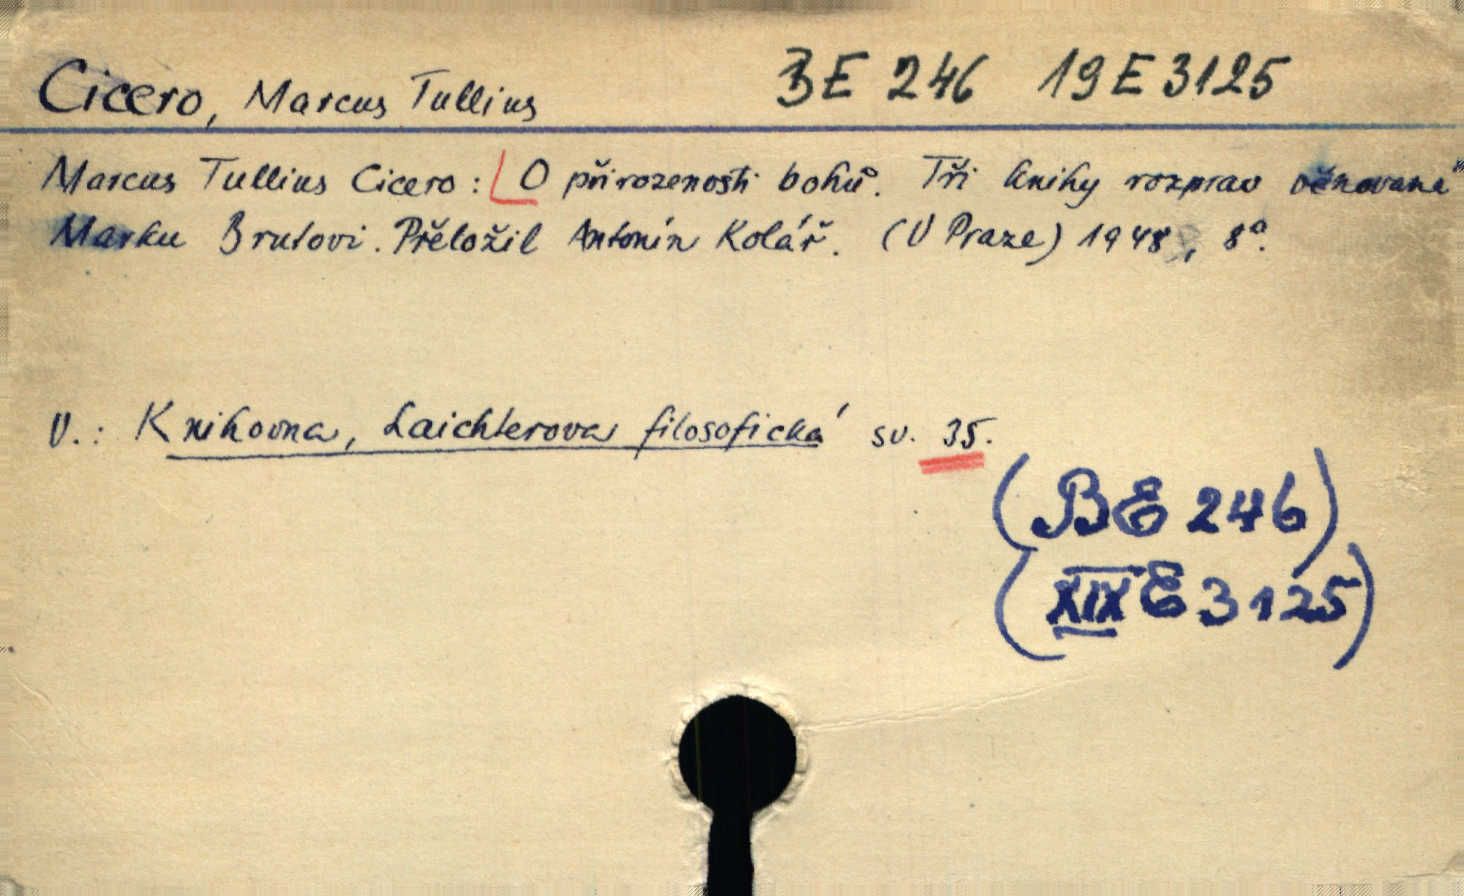 Cicero, Marcus Tullius BE 246 19 E 3125
Marcus Tullius Cicero: O přirozenosti bohů. Tři knihy rozprav věnované
Marku Brutovi. Přeložil Antonín Kolář. (V Praze) 1948, 8°.
V.: Knihovna, Laichterova filosofická sv. 35.
(BE 246)
(XIX E 3125)